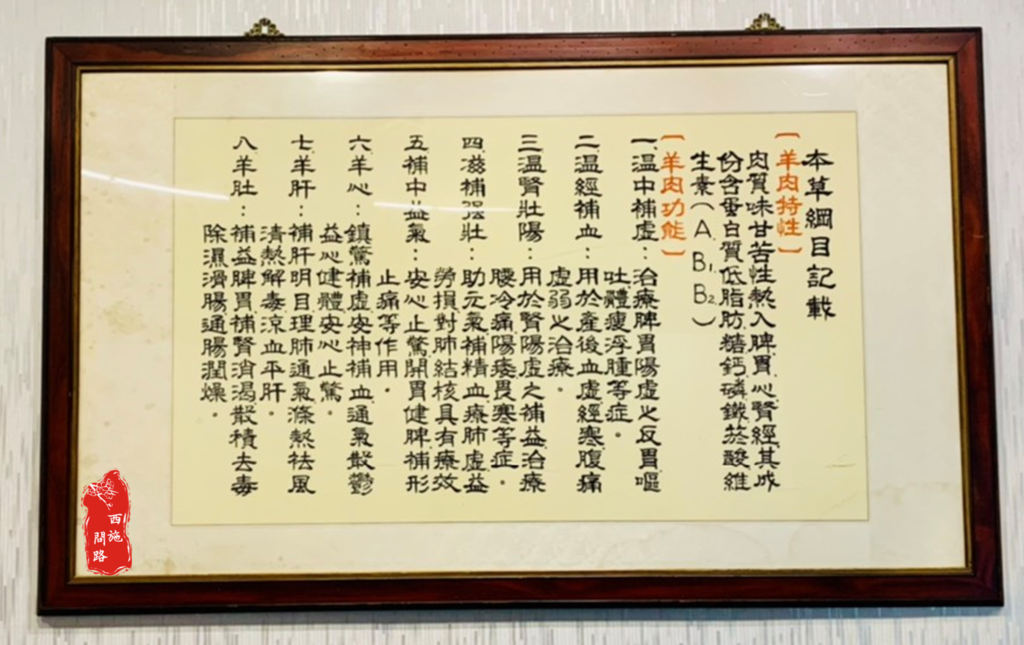 本草綱目記載
〔羊肉特性〕
肉質味甘苦性熱入脾胃心腎經其成
份含蛋白質低脂肪糖鈣磷鐵菸酸維
生素(A B₁ B₂)
〔羊肉功能〕
一、溫中補虛：治療脾胃陽虛之反胃嘔
吐體瘦浮腫等症。
二、溫經補血：用於產後血虛經寒腹痛
虛弱之治療。
三、溫腎壯陽：用於腎陽虛之補益治療
腰冷痛陽痿畏寒等症。
四、滋補强壯：助元氣補精血療肺虛益
勞損對肺結核具有療效
五、補中益氣：安心止驚開胃健脾補形
止痛等作用。
六、羊心：鎮驚補虛安神補血通氣散鬱
益心健體安心止驚。
七、羊肝：補肝明目理肺通氣滌熱祛風
清熱解毒涼血平肝。
八、羊肚：補益脾胃補腎消渴散積去毒
除濕滑腸通腸潤燥。
西施
問路